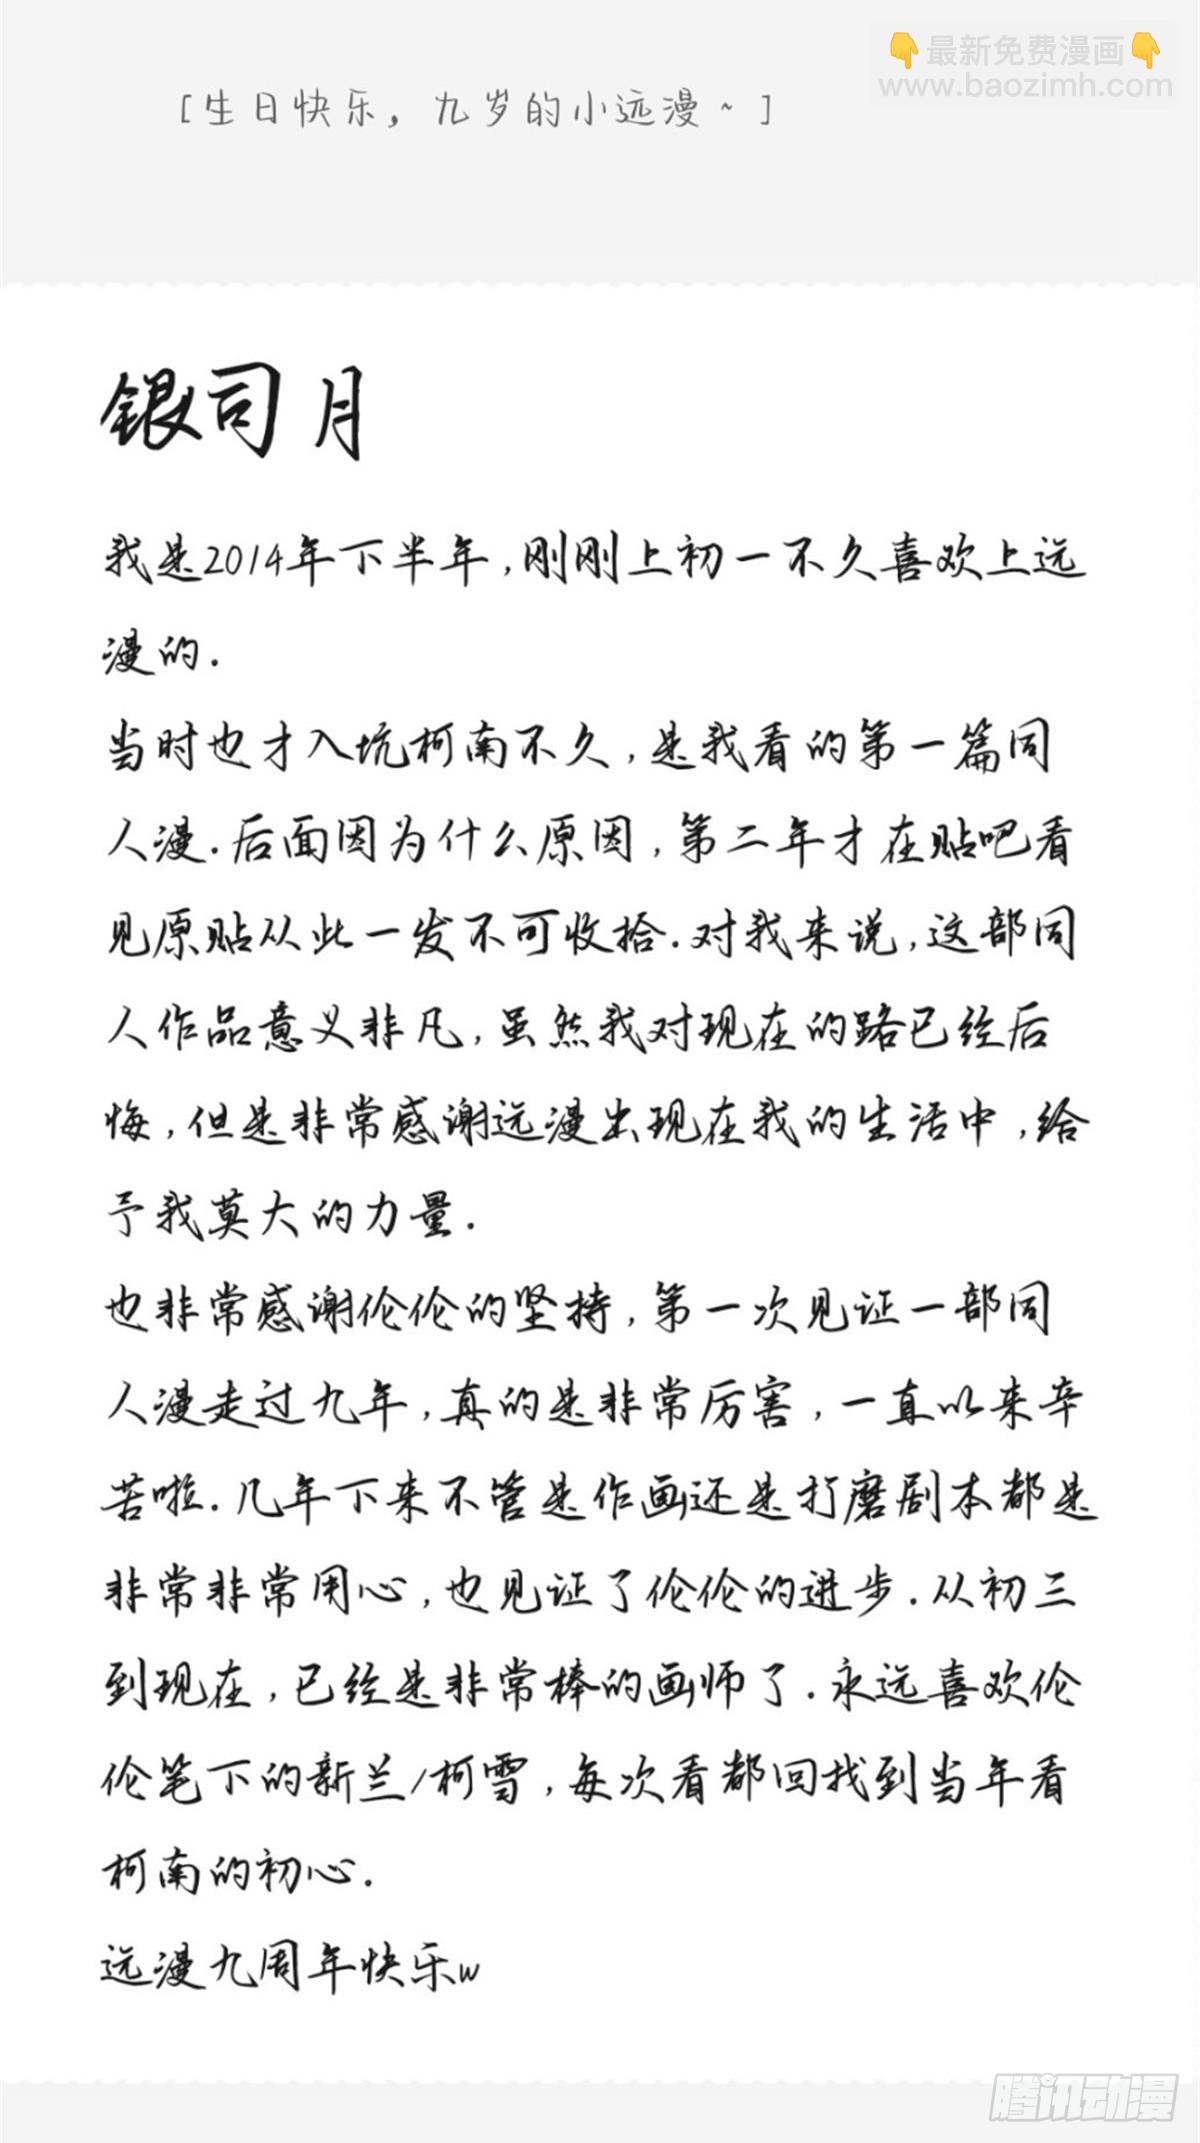 👇最新免费漫画👇
www.baozimh.com
[生日快乐，九岁的小远漫~]
银司月
我是2014年下半年,刚刚上初一不久喜欢上远
漫的.
当时也才入坑柯南不久,是我看的第一篇同
人漫.后面因为什么原因,第二年才在贴吧看
见原贴从此一发不可收拾.对我来说,这部同
人作品意义非凡,虽然我对现在的路已经后
悔,但是非常感谢远漫出现在我的生活中,给
予我莫大的力量.
也非常感谢伦伦的坚持,第一次见证一部同
人漫走过九年,真的是非常厉害,一直以来辛
苦啦.几年下来不管是作画还是打磨剧本都是
非常非常用心,也见证了伦伦的进步.从初三
到现在,已经是非常棒的画师了.永远喜欢伦
伦笔下的新兰/柯雪,每次看都回找到当年看
柯南的初心.
远漫九周年快乐w
腾讯动漫